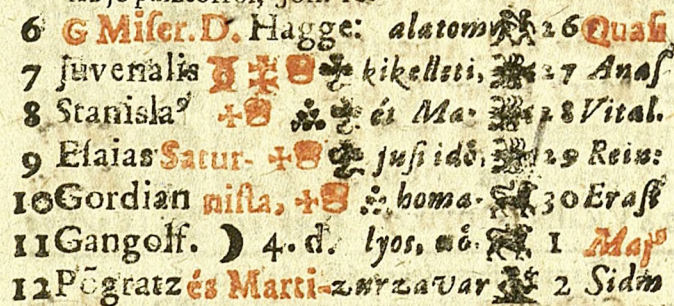 6 G Miser. D. Hagge: alatomv 26 Quasi
7 Juvenalis kikelleti, 27 Anas
8 Stanisla⁹ és Ma- 28 Vital.
9 Esaias Satur- jusi idö, 29 Rein:
10 Gordian nista, homa- 30 Erast
11 Gangolf. ☽ 4. d. lyos, 1 Maj⁹
12 Põgratz és Marti- zurzavar 2 Sidm